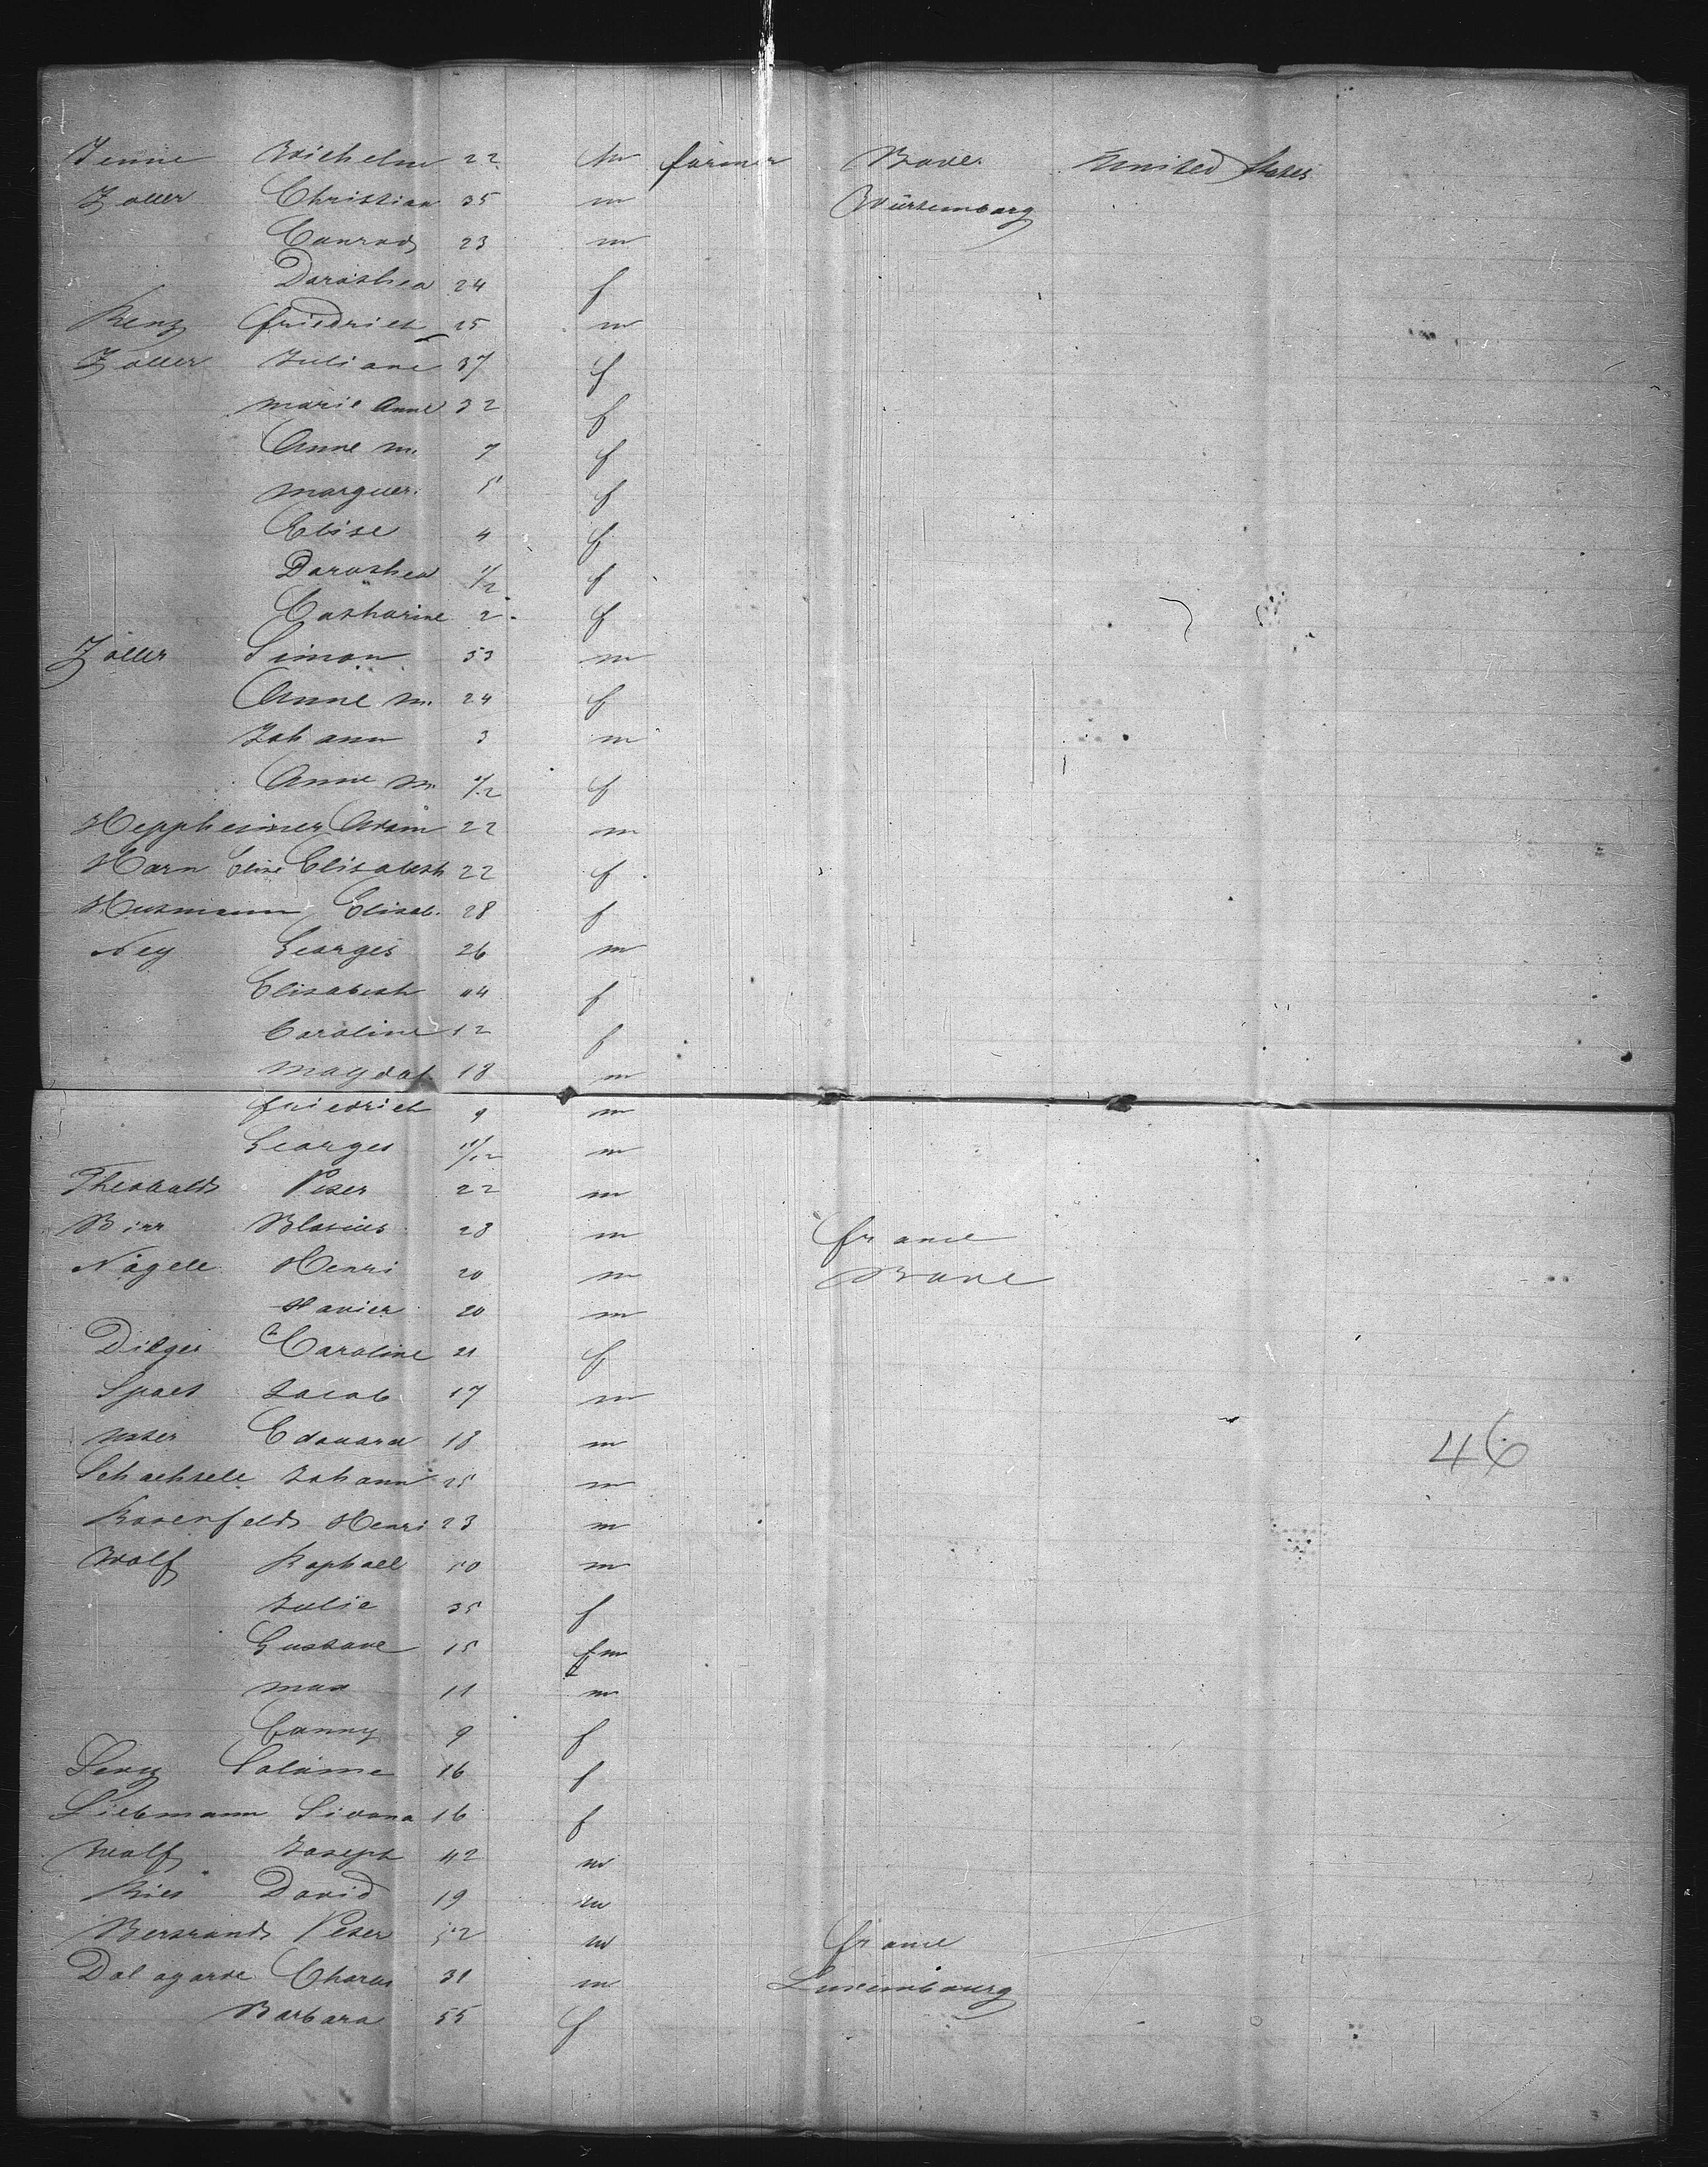 Jenne Wilhelm 22 m farmer Bade United States
Zoller Christian 35 m Würtemberg
Conrad 23 m
Dorothea 24 f
Renz Friedrich 25 m
Zoller Juliane 37 f
Marie Anne 32 f
Anne M. 7 f
Marguer. 5 f
Elise 4 f
Dorothea 1/2 f
Catharine 2 f
Zoller Simon 53 m
Anne M. 24 f
Johann 3 m
Anne M. 1/2 f
Heppheimer Adam 22 m
Horn Elise Elisabeth 22 f
Husmann Elisab. 28 f
Ney Georges 26 m
Elisabeth 44 f
Caroline 12 f
Magdal 18 m
Friedrich 9 m
Georges 11/12 m
Theobald Peter 22 m
Birr Blasius 28 m France
Nägele Henri 20 m Bade
Xavier 20 m
Dilger Caroline 21 f
Spaet Jacob 17 m
Edouard 18 m
Schaehtele Johann 25 m
46
Rosenfeld Henri 23 m
Wolf Raphael 50 m
Julie 35 f
Gustave 15 m
Max 11 m
Fanny 9 f
Levy Salome 16 f
Liebmann 16 f
Wolf Joseph 42 m
Ries David 19 m
Bertrand Peter 52 m France
Dalagarde Charles 31 m Luxembourg
Barbara 55 f